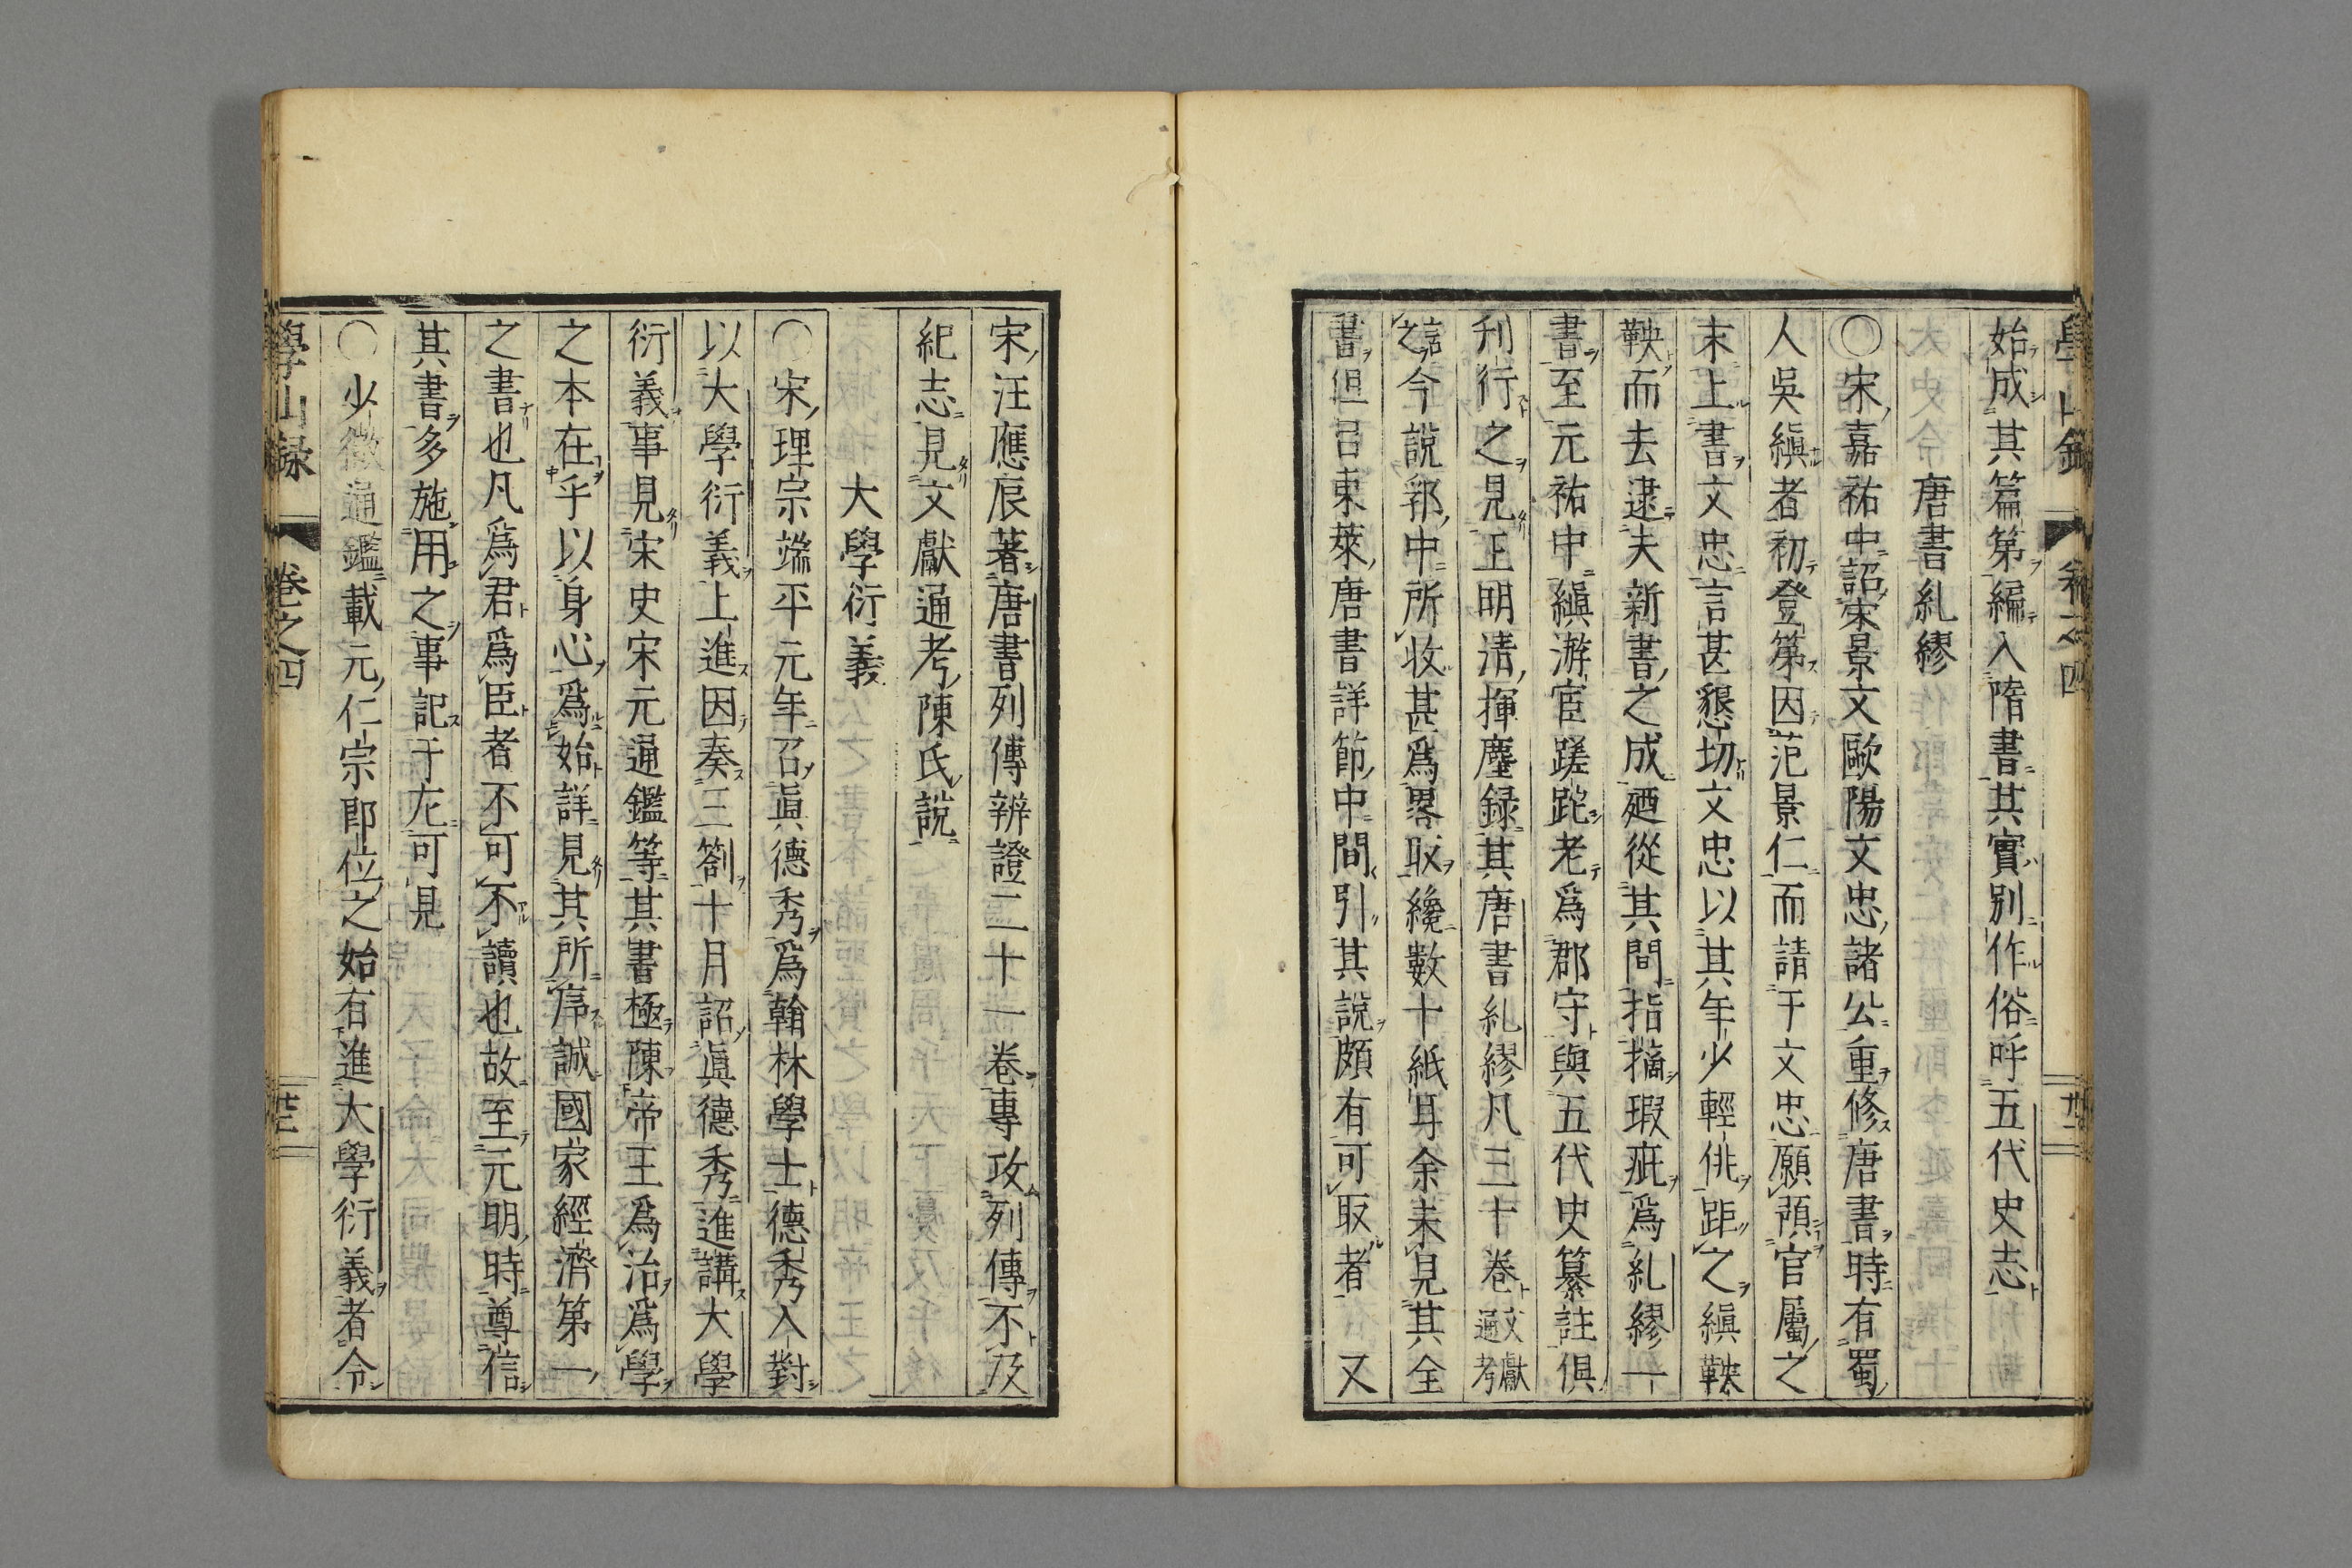 始成其篇第編入隋書其實別作俗呼五代史志
唐書糺繆
〇宋嘉祐中詔宋景文歐陽文忠諸公重修唐書時有蜀
人吳縝者初登第因范景仁而請于文忠願預官屬之
末上書文忠言甚懇切文忠以其年少輕佻距之縝鞅
鞅而去逮夫新書之成廼從其間指摘瑕疵爲糺繆一
書至元祐中縝游宦蹉跎老爲郡守與五代史纂註俱
刋行之見王明清揮麈録其唐書糺繆凡三十卷文獻通考
言之今說郛中所收甚爲畧取纔數十紙耳余未見其全
書但呂東萊唐書詳節中間引其說頗有可取者又
宋汪應辰著唐書列傳辨證二十一卷專攻列傳不及
紀志見文獻通考陳氏說
大學衍義
〇宋理宗端平元年召眞德秀爲翰林學士德秀入對
以大學衍義上進因奏三劄十月詔眞德秀進講大學
衍義事見宋史宋元通鑑等其書極陳帝王爲治爲學
之本在乎以身心爲始詳見其所序誠國家經濟第一
之書也凡爲君爲臣者不可不讀也故至元明時尊信
其書多施用之事記于左可見
〇少微通鑑載元仁宗即位之始有進大學衍義者令
學山録 卷之四